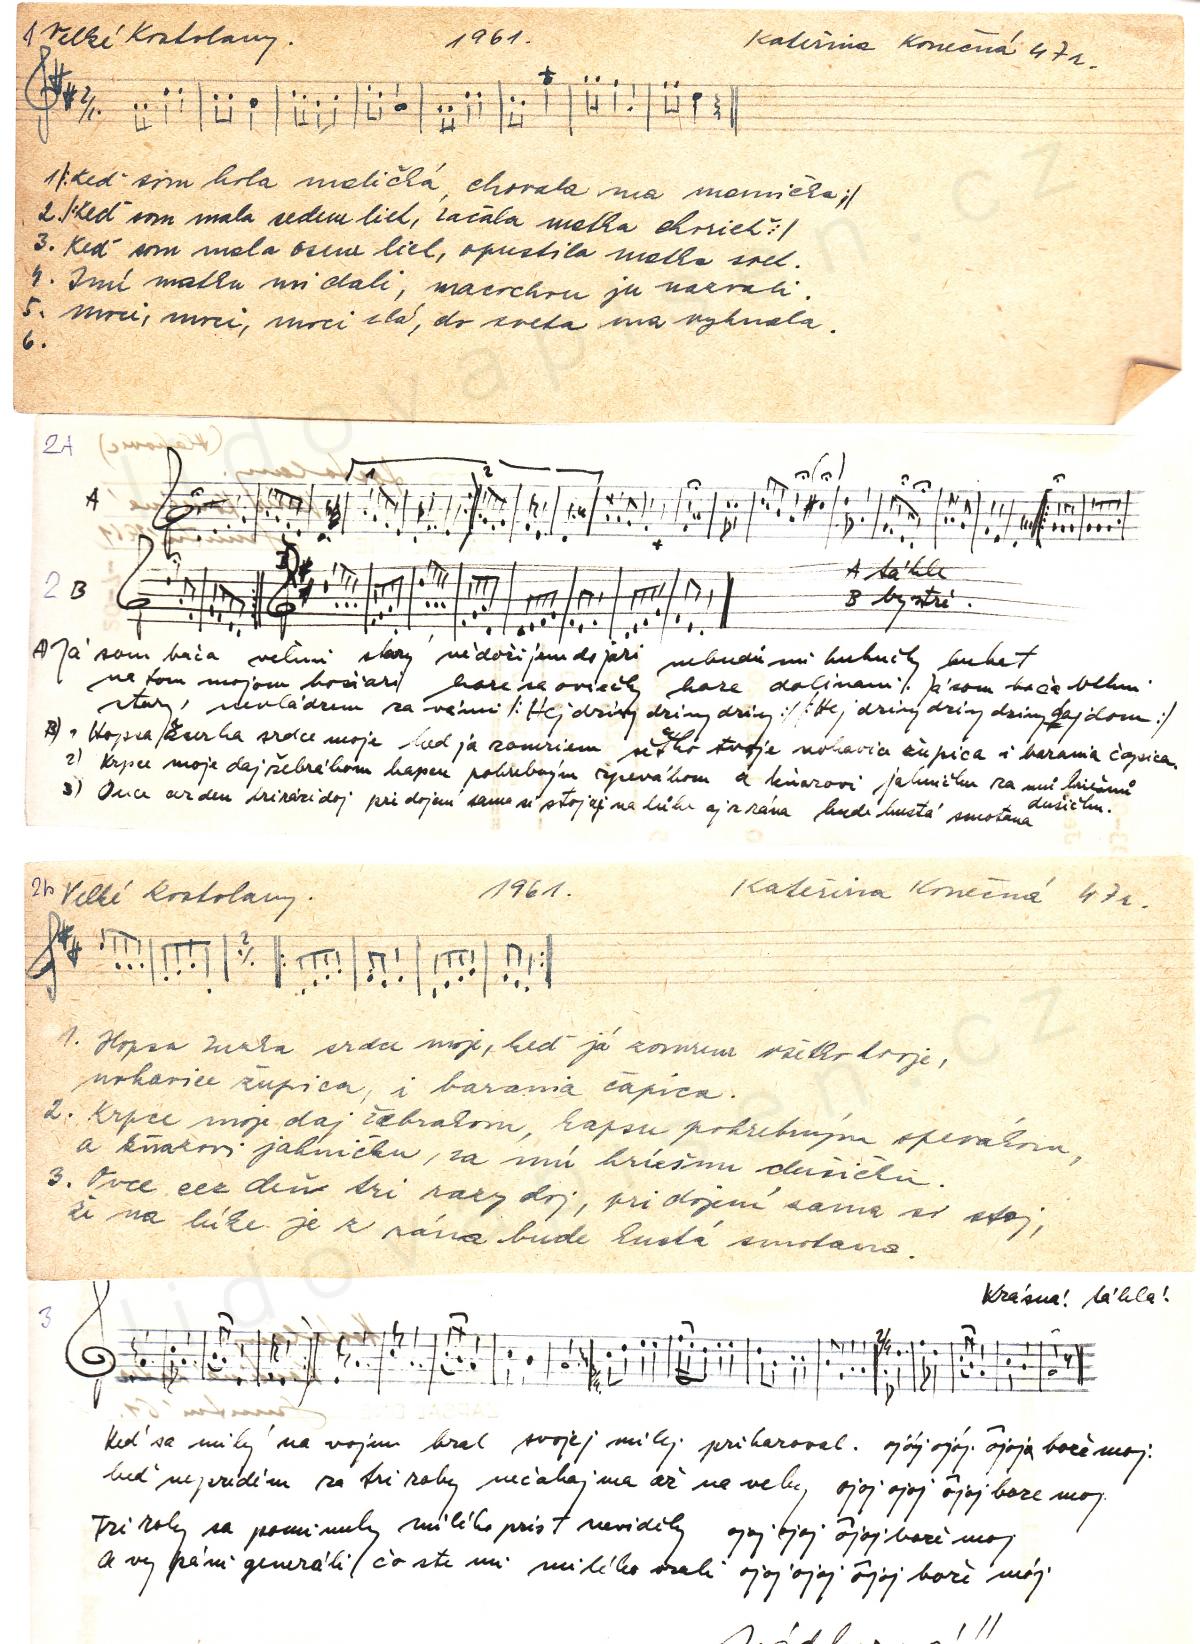 1 Veľké Kostolany. 1961. Kateřina Konečná 47r.
1./: Keď som bola maličká, chovala ma mamička :/
2./: Keď som mala sedem liet, začala matka chorieť :/
3. Keď som mala osem liet, opustila matka svet.
4. Inú matku mi dali, macochou ju nazvali.
5. moci, moci, moci zlá, do sveta ma vyhnala.
6.
2A
A
1 2
2 B
A táhle
B bystré.
A) Já som bača velmi starý nedožijem do jari nebudú mi kukučky kukat
na tom mojom košiari hore sa ovečky hore dolinami /: já som bača velmi
starý, nevládzem za vámi /: Hej driny driny driny :/ /: Hej driny driny driny aj dom :/
B) 1 Hopsa Zuzka srdce moje keď ja zomriem šecko tvoje nohavice župica i barania čapica.
2) Krpce moje daj žebrákom kapsu pohrebným zpevákom a kňazovi jahničku za mú hriešnú
dušičku.
3) Ovce cez den tri rázi doj pri dojení sama si stoj aj na lúke aj z rána bude hustá smotana
2b Veľké Kostolany. 1961. Kateřina Konečná 47r.
1. Hopsa Zuzka srdce moje, keď já zomrem všetko tvoje,
nohavice župica, i barania čapica.
2. Krpce moje daj žebrákom, kapsu pohrebným spevákom,
a kňazovi jahničku, za mú hriešnu dušičku.
3. Ovce cez deň tri razy doj, pri dojení sama si stoj,
na lúke je z rána bude hustá smotana.
Krásna! táhla!
3
2/4
Keď sa milý na vojnu bral svojej milej prikazoval. ojój ojój ojoja bože moj.
keď neprídem za tri roky nečakaj ma až na veky ojoj ojoj ojoj bože moj
Tri roky sa pominuly milého prísť nevidely ojoj ojoj ojoj bože moj
A vy páni generáli čo ste mi milého vzali ojoj ojoj ojoj bože mój
lidovapisen.cz
lidovapisen.cz